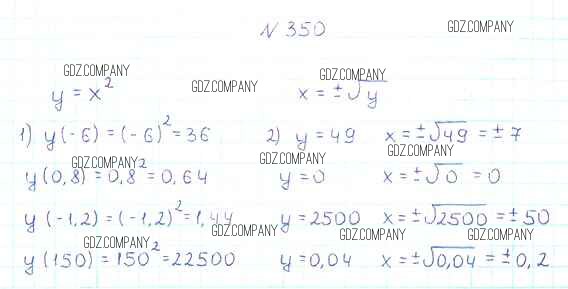 N 350 GDZ.COMPANY
GDZ.COMPANY GDZ.COMPANY GDZ.COMPANY
y = x² x = ±√y
1) y(-6) = (-6)² = 36 2) y = 49 x = ±√49 = ±7
GDZ.COMPANY GDZ.COMPANY GDZ.COMPANY
y(0,8) = 0,8² = 0,64 y = 0 x = ±√0 = 0
y(-1,2) = (-1,2)² = 1,44 y = 2500 x = ±√2500 = ±50
GDZ.COMPANY GDZ.COMPANY GDZ.COMPANY GDZ.COMPANY
y(150) = 150² = 22500 y = 0,04 x = ±√0,04 = ±0,2